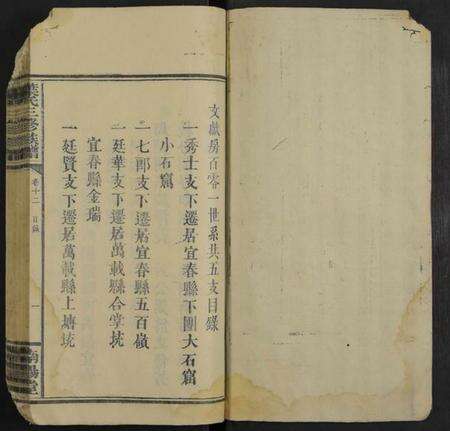 文獻房百零一世系共五支目錄
一秀士支下遷居宜春縣下團大石窩
小石窩
一七郎支下遷居宜春縣五百嶺
一廷華支下遷居萬載縣合堂坑
宜春縣金瑞
一廷賢支下遷居萬載縣上塘坑
葉氏三修族譜
卷十二
目錄
一
南陽堂